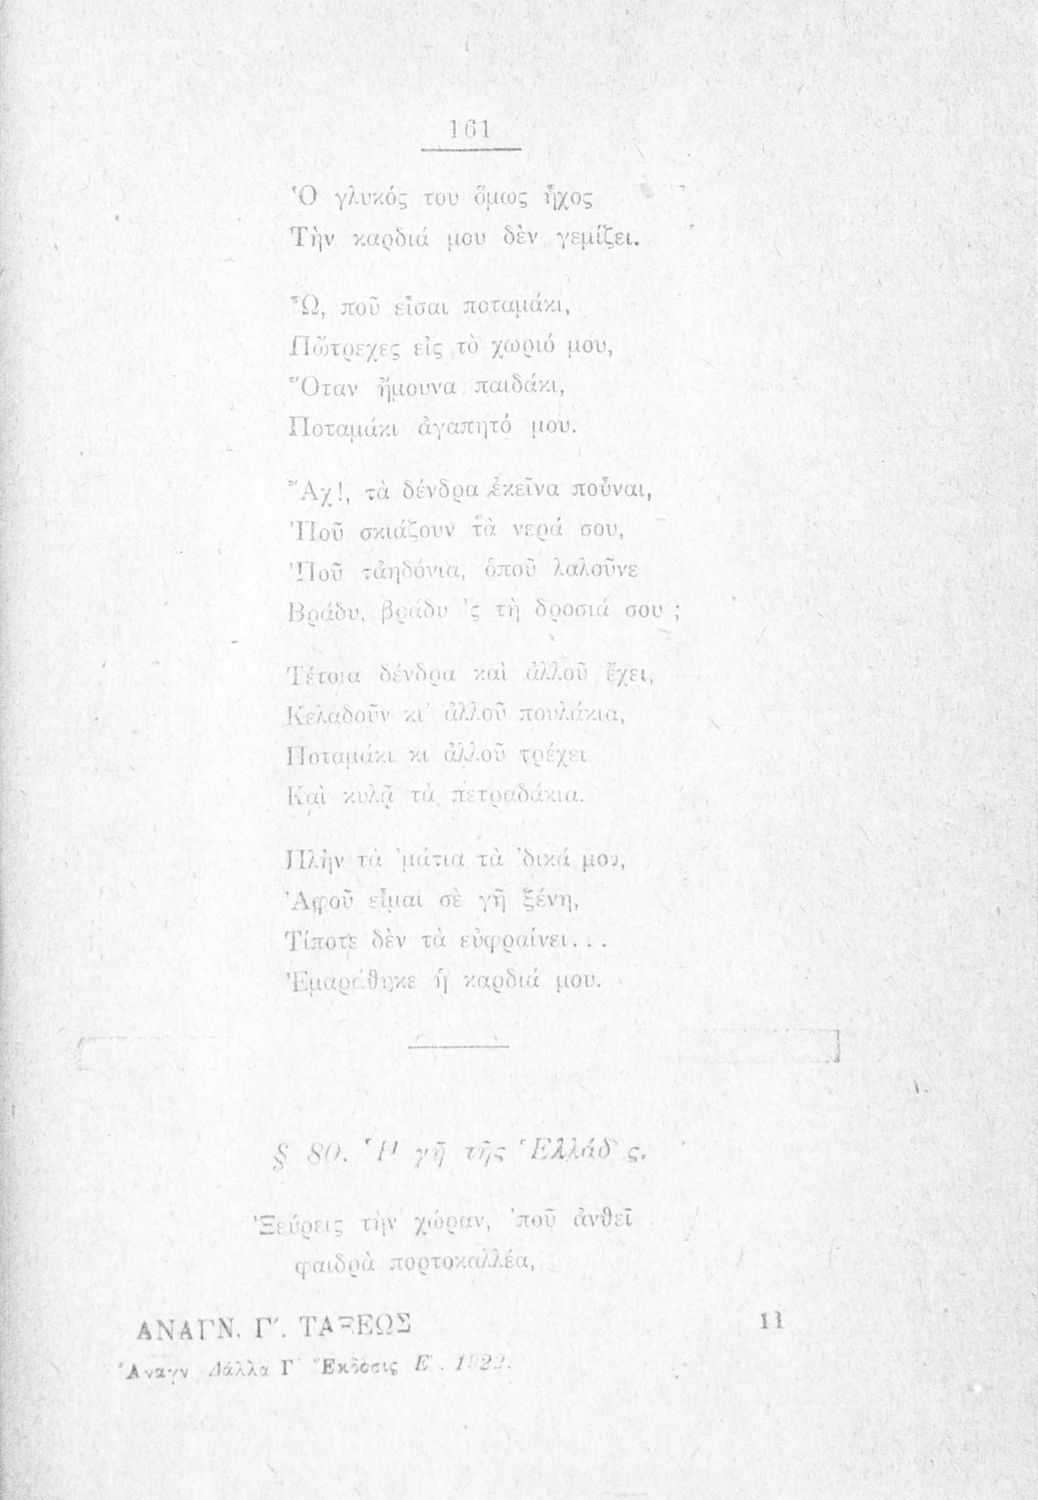 161
Ὁ γλυκός του ὅμως ἦχος
Τὴν καρδιά μου δὲν γεμίζει.
Ὦ, ποῦ εἶσαι ποταμάκι,
Πὤτρεχες εἰς τὸ χωριό μου,
Ὅταν ἤμουνα παιδάκι,
Ποταμάκι ἀγαπητό μου.
Ἄχ!, τὰ δένδρα ἐκεῖνα ποὖναι,
Ποῦ σκιάζουν τὰ νερά σου,
Ποῦ τἀηδόνια, ὁποῦ λαλοῦνε
Βράδυ, βράδυ 'ς τὴ δροσιά σου ;
Τέτοια δένδρα καὶ ἀλλοῦ ἔχει,
Κελαδοῦν κι' ἀλλοῦ πουλάκια,
Ποταμάκι κι ἀλλοῦ τρέχει
Καὶ κυλᾷ τὰ πετραδάκια.
Πλὴν τὰ 'μάτια τὰ 'δικά μου,
Ἀφοῦ εἶμαι σὲ γῆ ξένη,
Τίποτε δὲν τὰ εὐφραίνει...
Ἐμαράθηκε ἡ καρδιά μου.
§ 80. Ἡ γῆ τῆς Ἑλλάδ ς.
Ἠξεύρεις τὴν χώραν, 'ποῦ ἀνθεῖ
φαιδρὰ πορτοκαλλέα,
ΑΝΑΓΝ. Γ΄. ΤΑΞΕΩΣ 11
Ἀναγν Δάλλα Γ΄ Ἔκδοσις Ε΄. 1922.